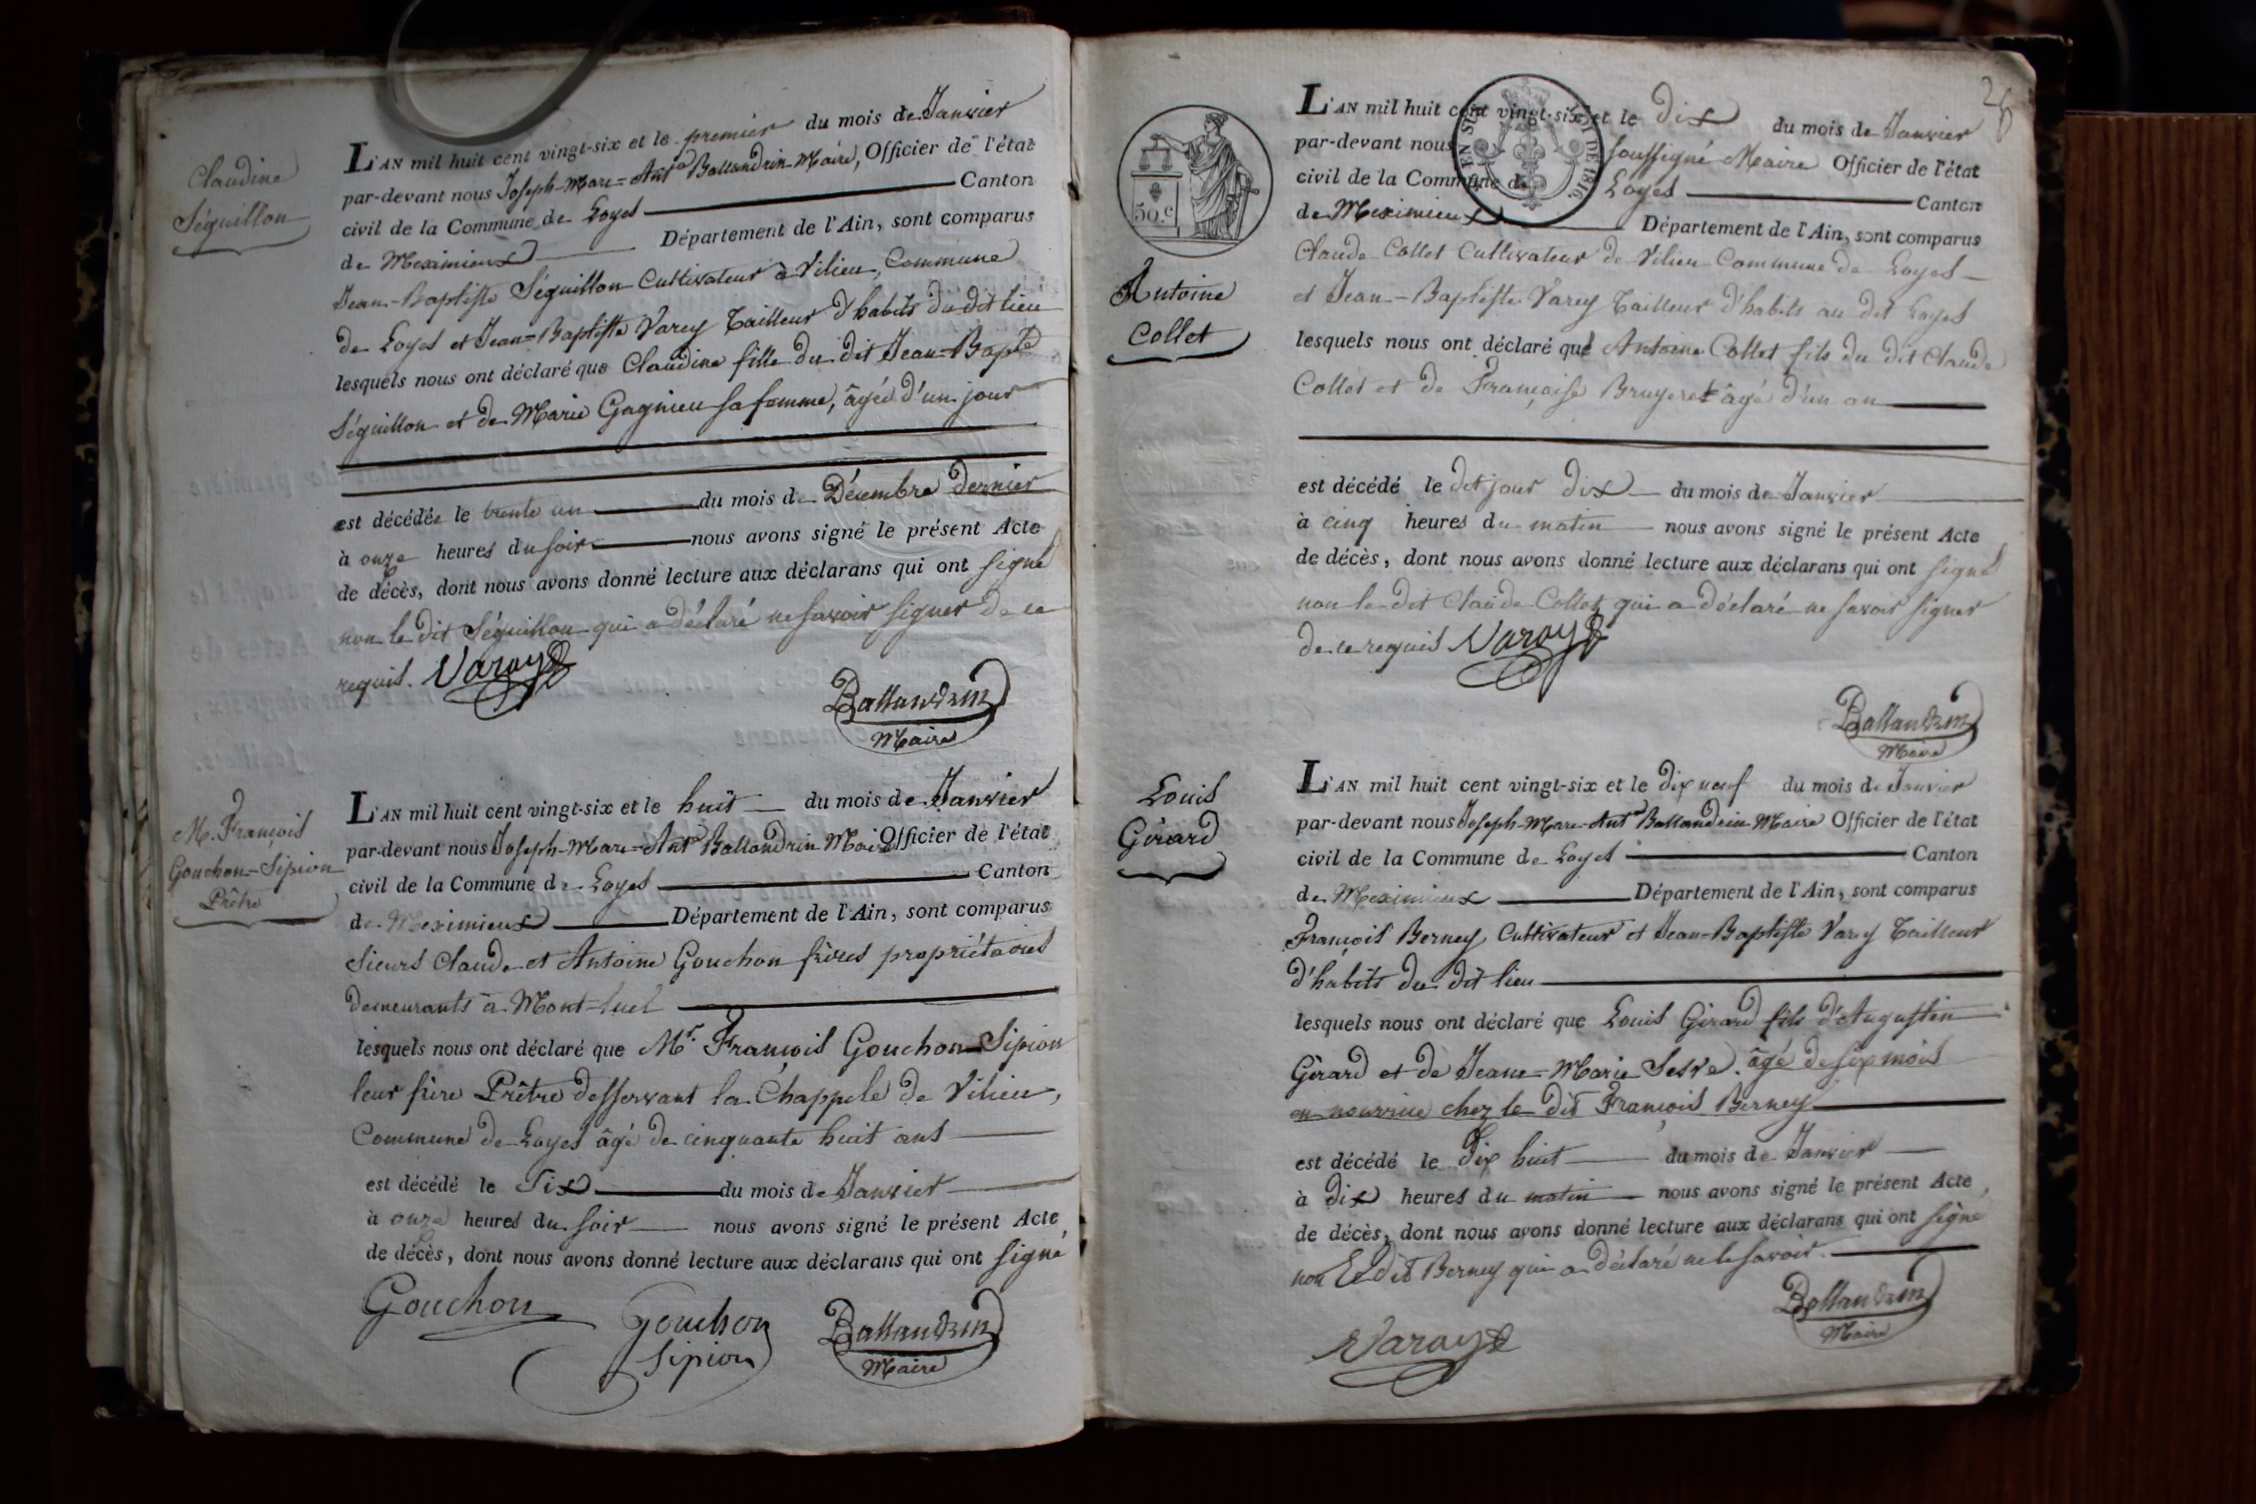 Claudine
Séguillon
L'AN mil huit cent vingt-six et le premier du mois de Janvier
par-devant nous Joseph-Marc-Ant^e Ballandrin Maire, Officier de l'état
civil de la Commune de Loyes Canton
de Meximieux Département de l'Ain, sont comparus
Jean-Baptiste Séguillon Cultivateur à Vilieu, Commune
de Loyes et Jean-Baptiste Varey Tailleur d'habits du dit lieu
lesquels nous ont déclaré que Claudine fille du dit Jean-Bapt^e
Séguillon et de Marie Gagnieu sa femme, âgée d'un jour
est décédée le trente un du mois de Décembre dernier
à onze heures du soir nous avons signé le présent Acte
de décès, dont nous avons donné lecture aux déclarans qui ont signé
non le dit Séguillon qui a déclaré ne savoir signer de ce
requis. Varay
Ballandrin
Maire
M. François
Gouchon-Sipion
Prêtre
L'AN mil huit cent vingt-six et le huit du mois de Janvier
par-devant nous Joseph-Marc-Ant^e Ballandrin Maire Officier de l'état
civil de la Commune de Loyes Canton
de Meximieux Département de l'Ain, sont comparus
Sieurs Claude et Antoine Gouchon frères propriétaires
demeurants à Mont-luel
lesquels nous ont déclaré que Mr. François Gouchon-Sipion
leur frère Prêtre desservant la Chappele de Vilieu,
Commune de Loyes âgé de cinquante huit ans
est décédé le Six du mois de Janvier
à onze heures du soir nous avons signé le présent Acte
de décès, dont nous avons donné lecture aux déclarans qui ont signé
Gouchon Gouchon Ballandrin
Sipion Maire
26
50.c
EN SUS LOI DE 1816
Antoine
Collet
L'AN mil huit cent vingt-six et le dix du mois de Janvier
par-devant nous soussigné Maire Officier de l'état
civil de la Commune de Loyes Canton
de Meximieux Département de l'Ain, sont comparus
Claude Collet Cultivateur de Vilieu Commune de Loyes
et Jean-Baptiste Varey Tailleur d'habits au dit Loyes
lesquels nous ont déclaré que Antoine Collet fils du dit Claude
Collet et de Françoise Bruyeret âgé d'un an
est décédé le dit jour dix du mois de Janvier
à cinq heures du matin nous avons signé le présent Acte
de décès, dont nous avons donné lecture aux déclarans qui ont signé
non le dit Claude Collet qui a déclaré ne savoir signer
de ce requis Varay
Ballandrin
Maire
Louis
Girard
L'AN mil huit cent vingt-six et le dix neuf du mois de Janvier
par-devant nous Joseph-Marc-Ant^e Ballandrin Maire Officier de l'état
civil de la Commune de Loyes Canton
de Meximieux Département de l'Ain, sont comparus
François Berney Cultivateur et Jean-Baptiste Varey Tailleur
d'habits du dit lieu
lesquels nous ont déclaré que Louis Girard fils d'Augustin
Girard et de Jeanne-Marie Sesve. âgé de six mois
en nourrice chez le dit François Berney
est décédé le Dix huit du mois de Janvier
à dix heures du matin nous avons signé le présent Acte
de décès, dont nous avons donné lecture aux déclarans qui ont signé
non le dit Berney qui a déclaré ne le savoir.
Ballandrin
Maire
Varay